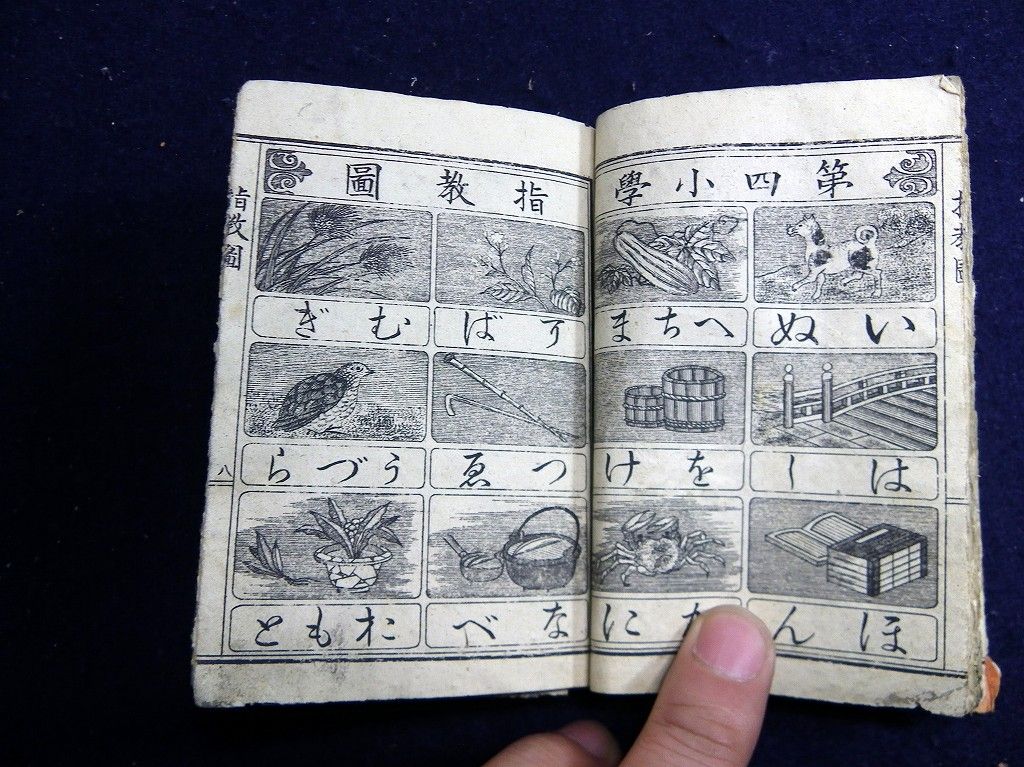 第四小學
指教圖
いぬ
へちま
むぎ
はし
をけ
つゑ
うづら
ほん
かに
なべ
おもと
指教圖
八